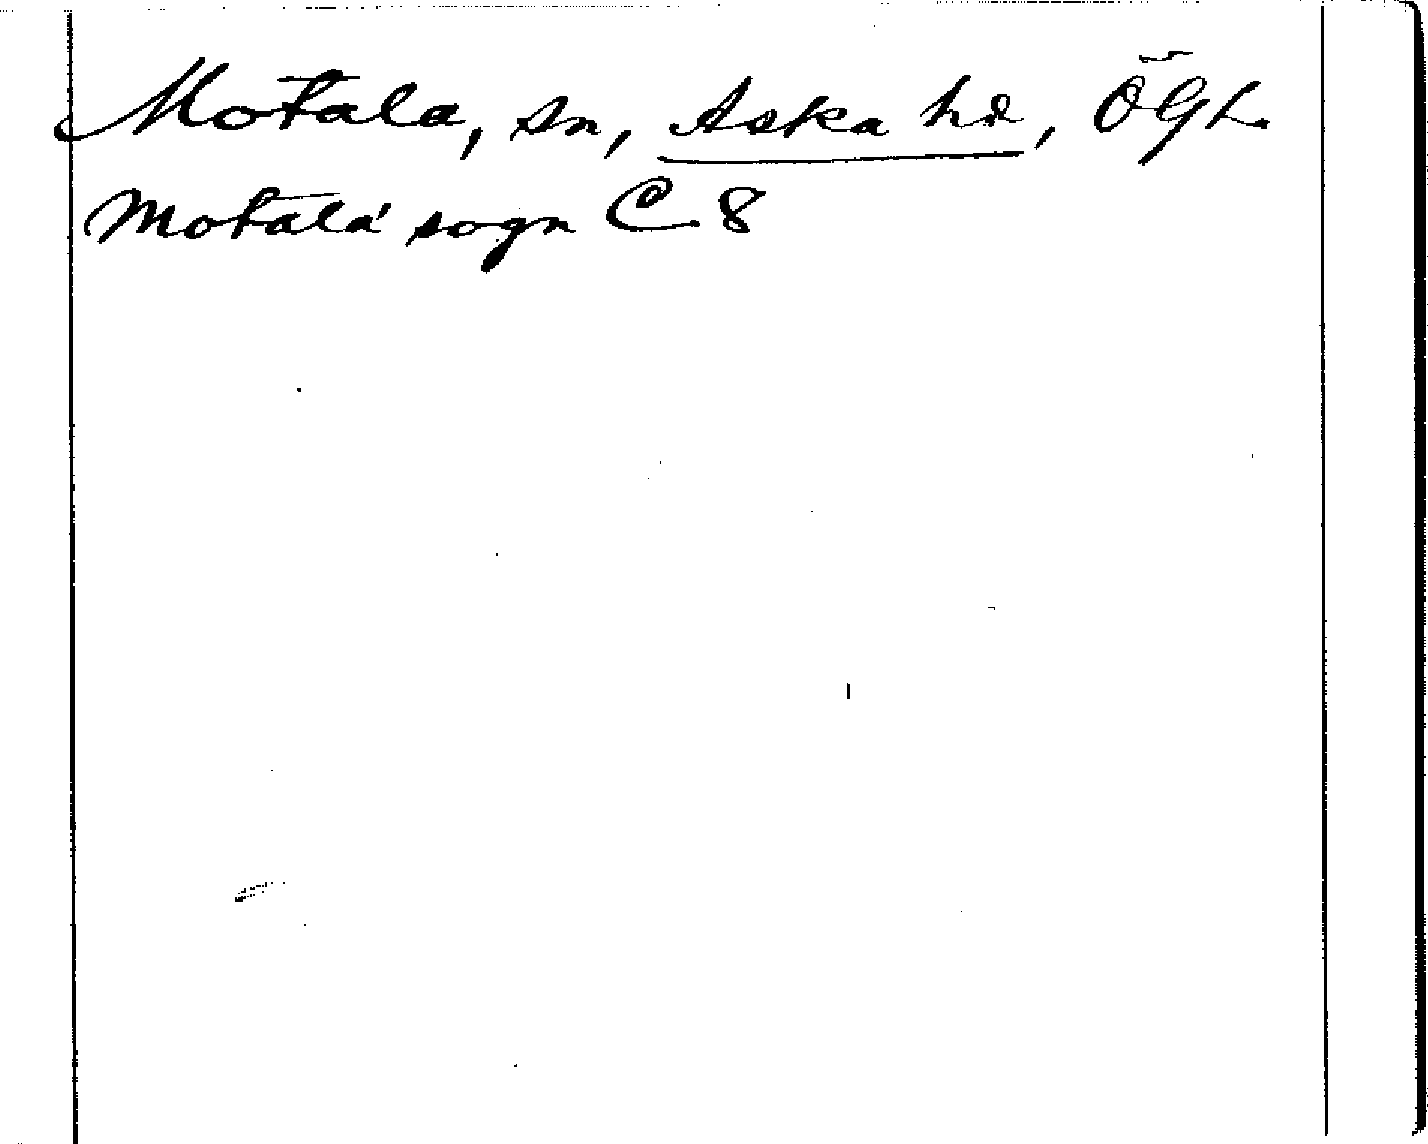 Motala, sn, Aska hd, ÖGL.
Motala sogn C. 8